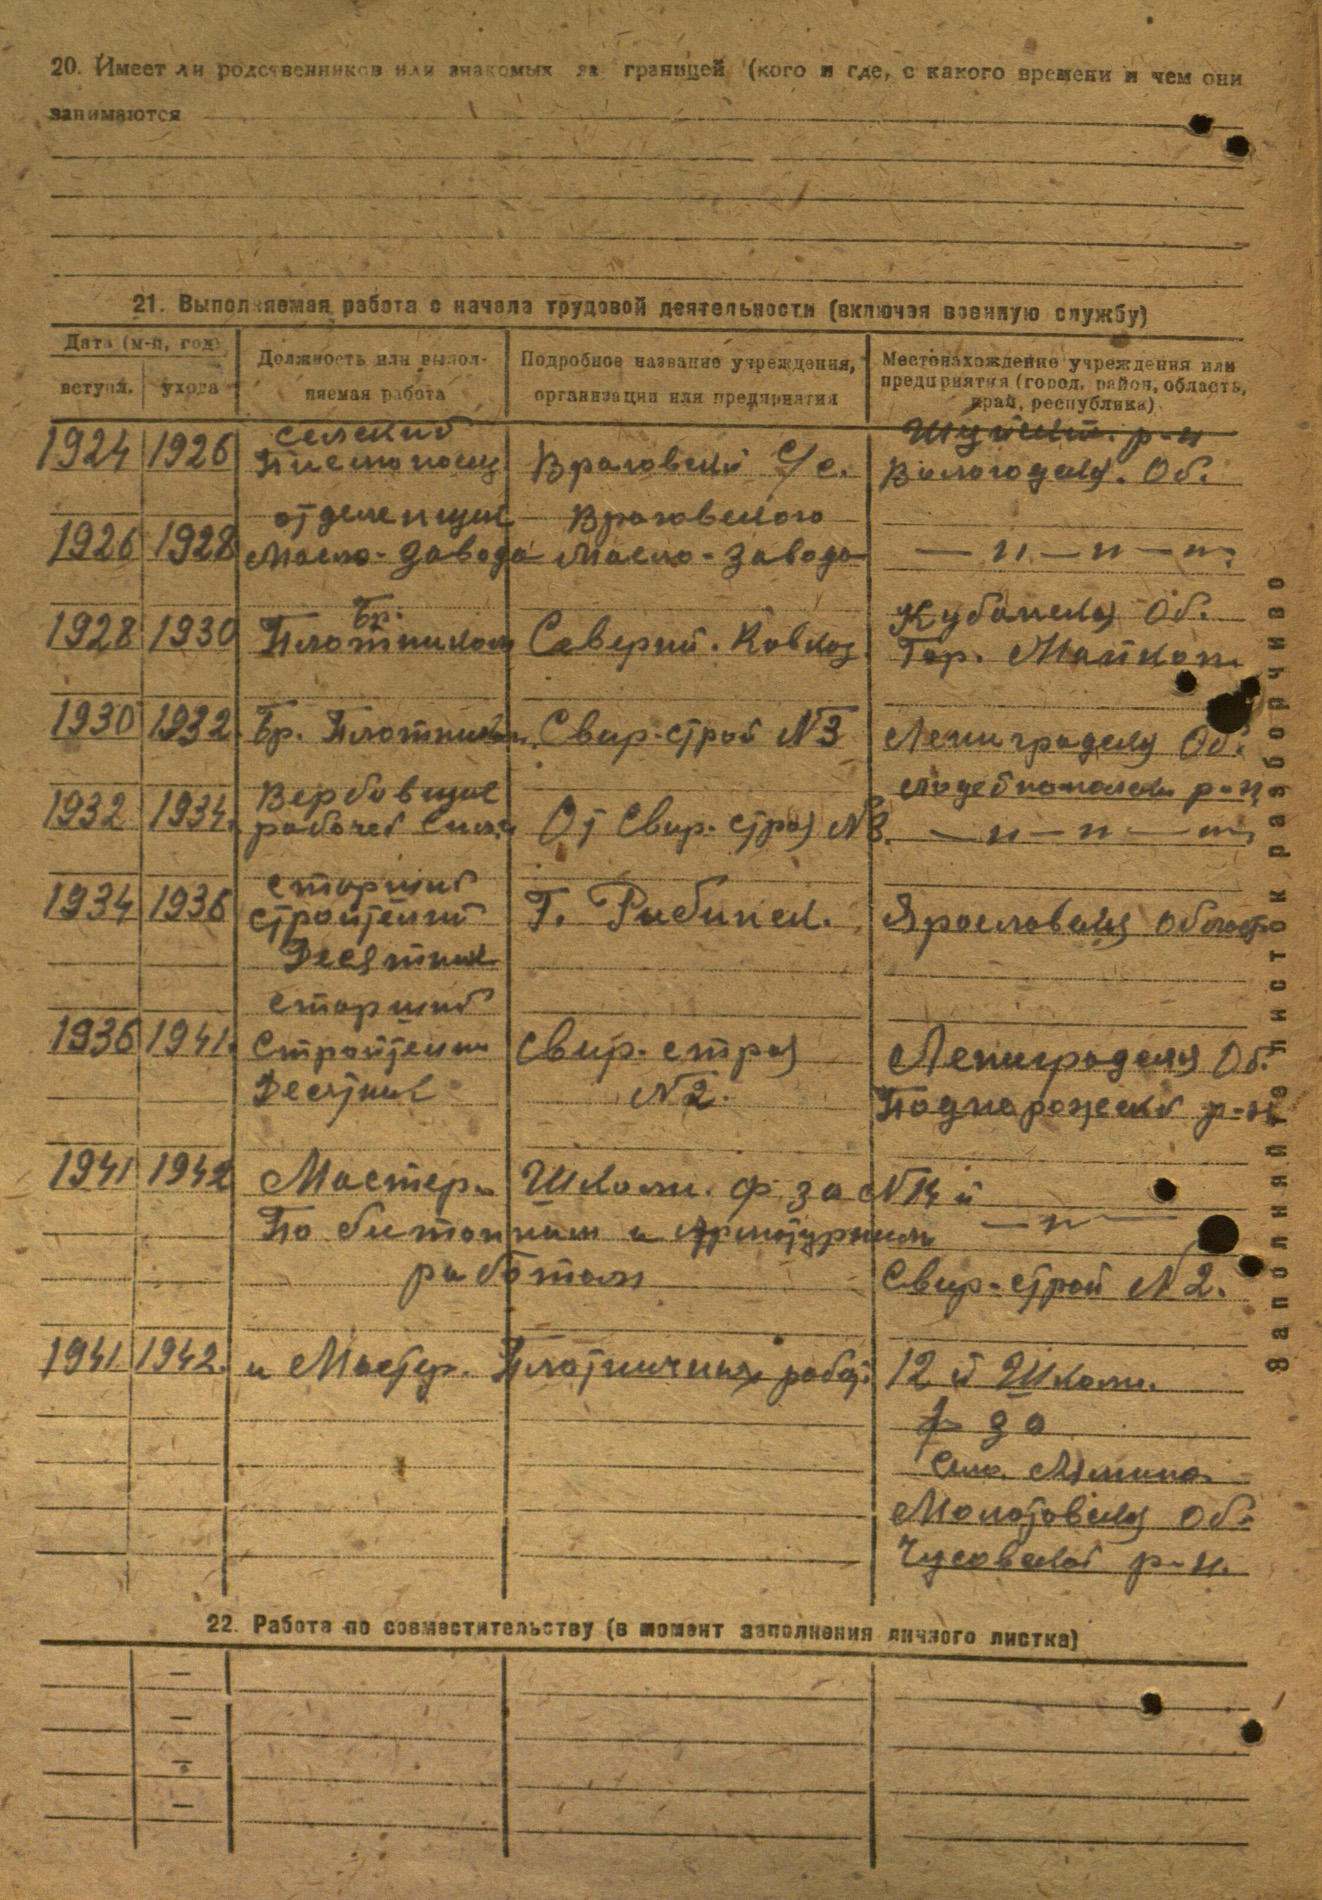 20. Имеет ли родственников или знакомых за границей (кого и где, с какого времени и чем они
занимаются
21. Выполняемая работа с начала трудовой деятельности (включая военную службу)
Дата (м-ц, год)
вступл.
ухода
Должность или выпол-
няемая работа
Подробное название учреждения,
организации или предприятия
Местонахождение учреждения или
предприятия (город, район, область,
край, республика)
1924 1926 селский
Писмоносец
Враговский С/с.
р-н
Вологодская. Об.
1926 1928 отделенщик
Масло-завода
Враговского
Масло-завода
— " — " — " —
1928 1930 Бр.
Плотников
Северный. Кавказ.
Кубанская Об.
Гор. Майкоп
1930 1932. Бр. Плотников
Свир-строй №3
Ленинградская Об.
р-н
1932 1934. Вербовщик
рабочей силы
От Свир-строя №3.
— " — " — " —
1934 1936 старший
строителний
Десятник
Г. Рыбинск.
Ярославская Област
1936 1941. старший
Строителни
Десятник
Свир-строя
№2.
Ленинградская Об.
Подпорожский р-н
1941 1942 Мастер. Школи. ф за №14 й
По битонным и Арматурным — " —
работам
Свир-строй №2.
1941 1942. и Мастер. Плотничных работ.
12 й Школи.
ф за
Село.
Молотовская Об.
Чусовской р-н.
22. Работа по совместительству (в момент заполнения личного листка)
—
—
—
—
Заполняйте листок разборчиво